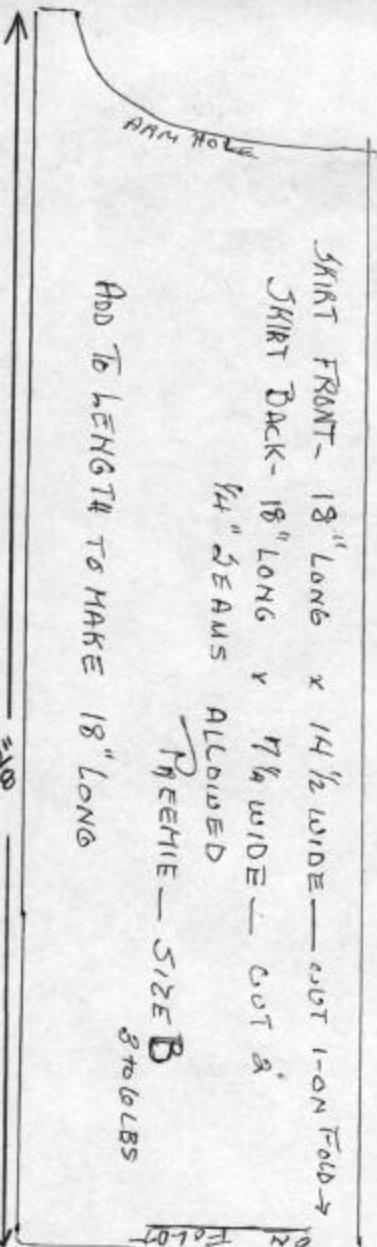 ARM HOLE
SKIRT FRONT- 18" LONG x 14 1/2 WIDE — CUT 1-ON FOLD →
SKIRT BACK- 18" LONG x 7 1/2 WIDE — CUT 2
1/4" SEAMS ALLOWED
PREEMIE — SIZE B
3 TO 6 LBS
ADD TO LENGTH TO MAKE 18" LONG
18"
ON FOLD